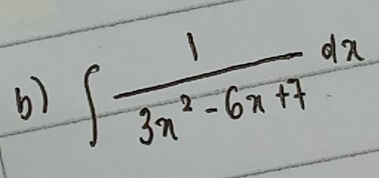 b) ∫ 1/(3x² - 6x + 7) dx